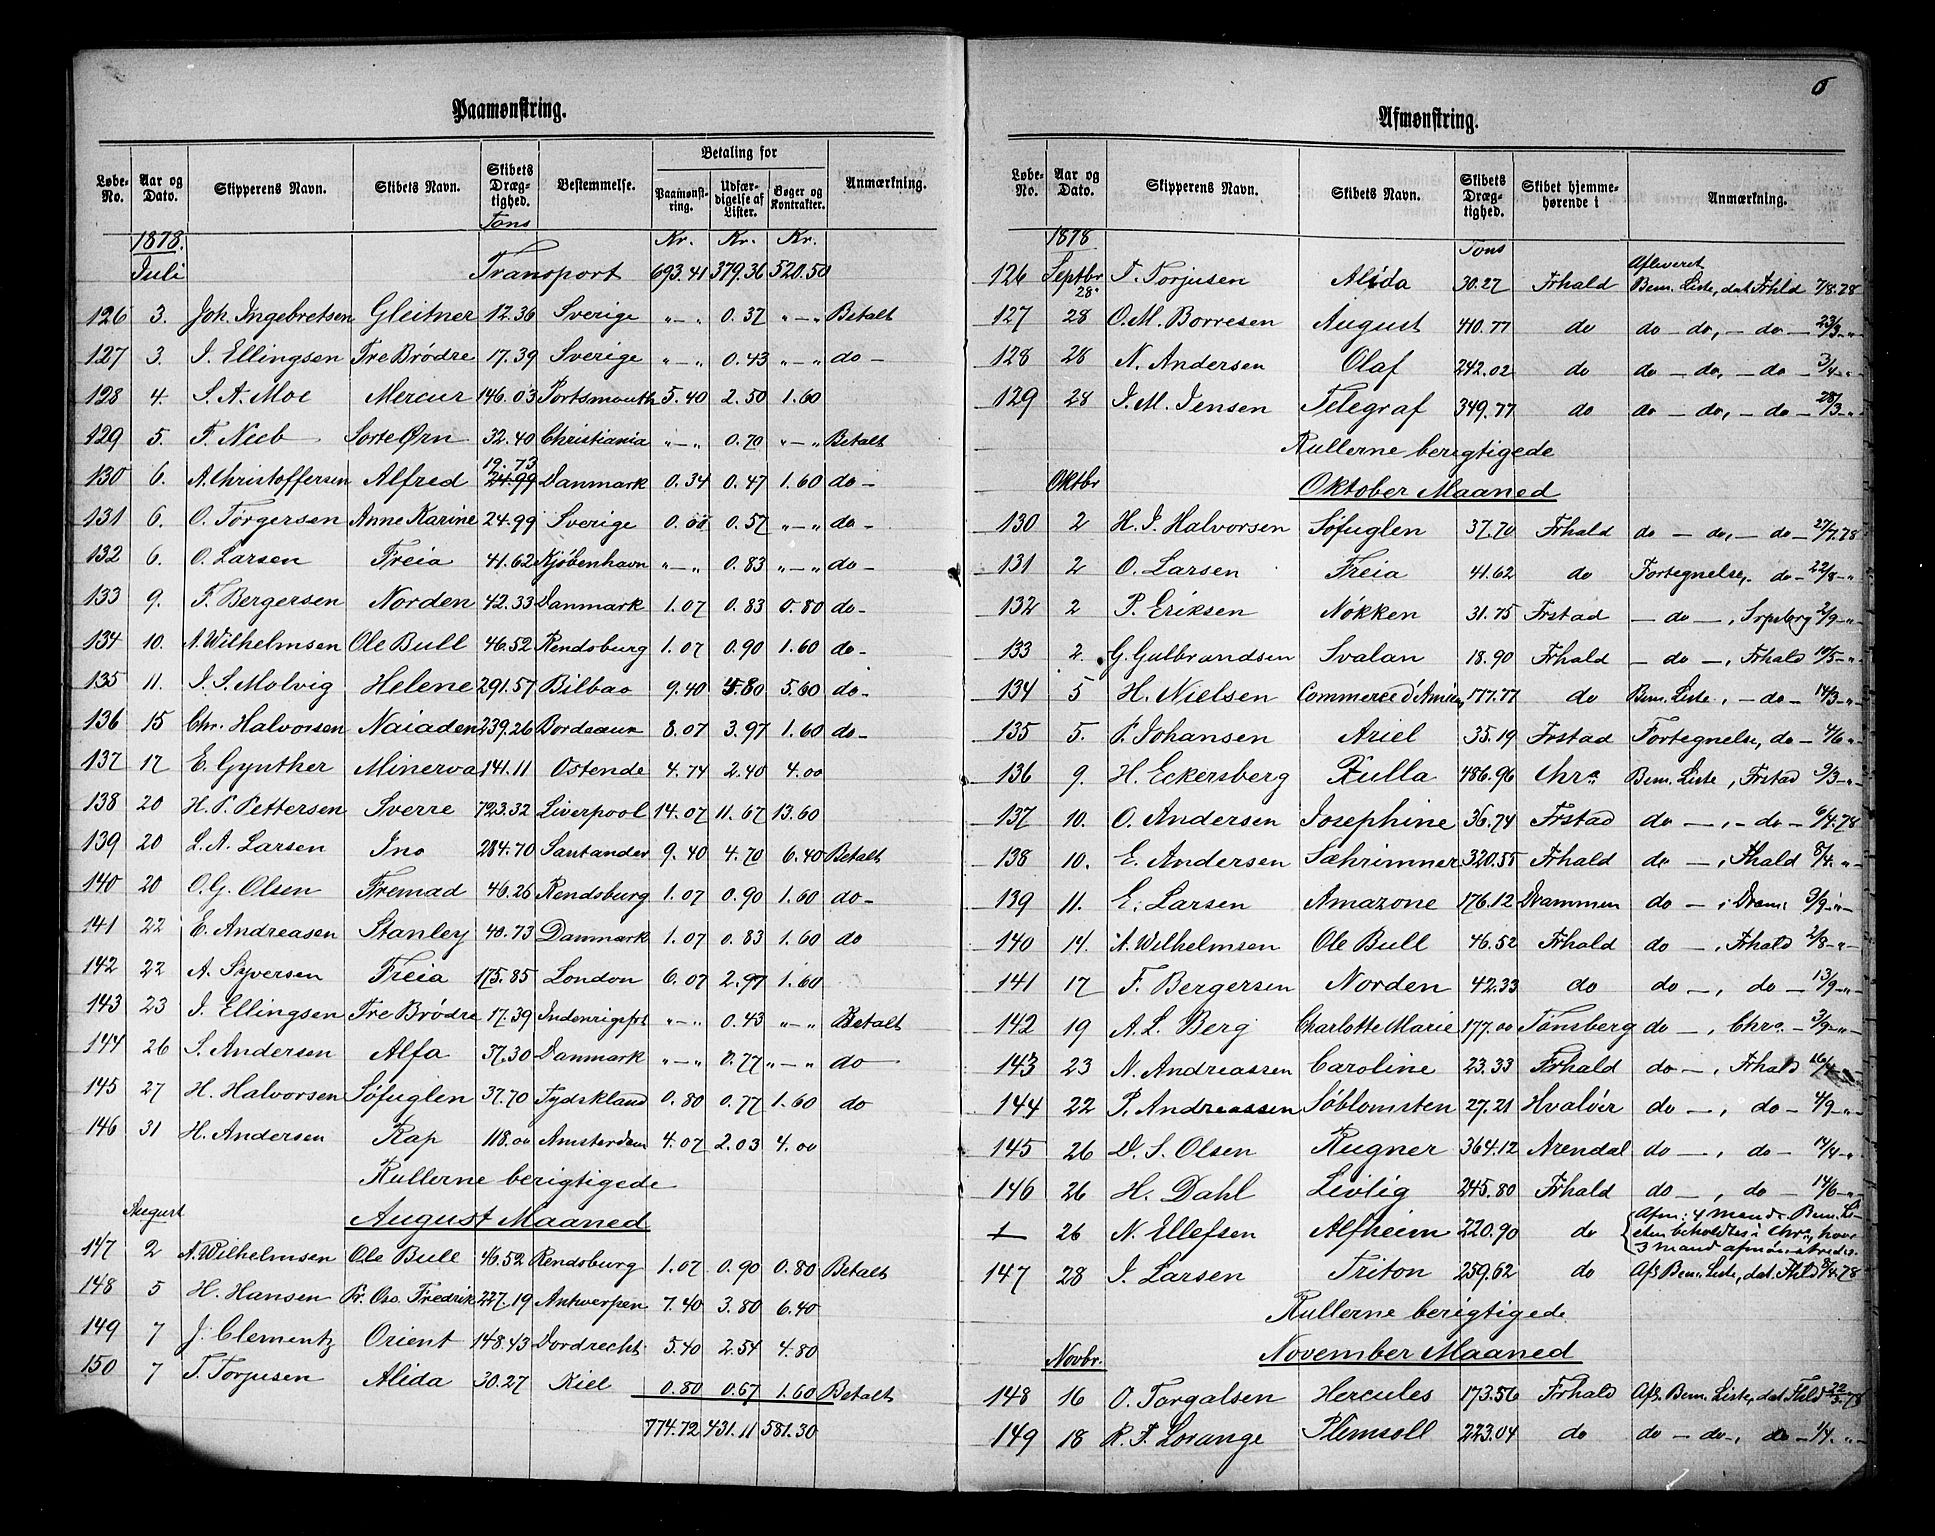 Paamønstring.
Løbe-No. Aar og Dato. Skipperens Navn. Skibets Navn. Skibets Dræg-tighed. Bestemmelse. Betaling for Paamønst-ring. Udfær-digelse af Lister. Bøger og Kontrakter. Anmærkning.
Tons
1878. Kr. Kr. Kr.
Juli Transport 693.41 379.36 520.50
126 3. Joh. Ingebretsen Gleitner 12.36 Sverige "—" 0.37 "—" Betalt
127 3. I. Ellingsen Tre Brödre 17.39 Sverige "—" 0.43 "—" do —
128 4. S. A. Moe Mercur 146.03 Portsmouth 5.40 2.50 1.60
129 5. F. Neeb Sorte Ørn 32.40 Christiania "—" 0.70 "—" Betalt
19.73
130 6. A. Christoffersen Alfred 24.99 Danmark 0.34 0.47 1.60 do —
131 6. O. Törgersen Anne Karine 24.99 Sverige 0.00 0.57 "—" do —
132 6. O. Larsen Freia 41.62 Kjöbenhavn "—" 0.83 "—" do —
133 9. F. Bergersen Norden 42.33 Danmark 1.07 0.83 0.80 do —
134 10. A. Wilhelmsen Ole Bull 46.52 Rendsburg 1.07 0.90 1.60 do —
135 11. I. S. Molvig Helene 291.57 Bilbao 9.40 4.80 5.60 do —
136 15 Chr. Halvorsen Naiaden 239.26 Bordeaux 8.07 3.97 1.60 do —
137 17 E. Gynther Minerva 141.11 Ostende 4.74 2.40 4.00
138 20 H. P. Pettersen Sverre 723.32 Liverpool 14.07 11.67 13.60
139 20 L. A. Larsen Ino 284.70 Santander 9.40 4.70 6.40 Betalt
140 20 O. G. Olsen Fremad 46.26 Rendsburg 1.07 0.90 1.60 do —
141 22 E. Andreasen Stanley 40.73 Danmark 1.07 0.83 1.60 do
142 22 A. Syversen Freia 175.85 London 6.07 2.97 1.60
143 23 I. Ellingsen Tre Brödre 17.39 Indenrigsfrt "—" 0.43 "—" Betalt
144 26 S. Andersen Alfa 37.30 Danmark "—" 0.77 "—" do
145 27 H. Halvorsen Söfuglen 37.70 Tydskland 0.80 0.77 1.60 do
146 31 H. Andersen Rap 118.00 Amsterdam 4.07 2.03 4.00
Rullerne berigtigede
August August Maaned
147 2 A. Wilhelmsen Ole Bull 46.52 Rendsburg 1.07 0.90 0.80 Betalt
148 5 H. Hansen Pr. Osc. Fredrik 227.19 Antwerpen 7.40 3.80 6.40
149 7 J. Clementz Orient 148.43 Dordrecht 5.40 2.54 4.80
150 7 T. Torjusen Alida 30.27 Kiel 0.80 0.67 1.60 Betalt
774.72 431.11 581.30
6
Afmønstring.
Løbe-No. Aar og Dato. Skipperens Navn. Skibets Navn. Skibets Dræg-tighed. Skibet hjemme-hørende i Anmærkning.
1878 Tons
Afleveret
126 Septbr 28. T. Torjusen Alida 30.27 Frhald Bem. Liste, dat Frhld 7/8.78
127 28 O. M. Borresen August 410.77 do do — do, — do — 23/3 — "
128 28 N. Andersen Olaf 242.02 do do — do, — do — 3/4 — "
129 28 I. M. Jensen Telegraf 349.77 do do — do, — do — 28/3 — "
Rullerne berigtigede
Oktbr Oktober Maaned
130 2 H. I. Halvorsen Söfuglen 37.70 Frhald do — do, — do — 27/7.78
131 2 O. Larsen Freia 41.62 do Fortegnelse, do — 22/8 — "
132 2 P. Eriksen Nökken 31.75 Frstad — do —, Srpsborg 2/9 — "
133 2. G. Gulbrandsen Svalan 18.90 Frhald — do —, Frhald 10/5 — "
134 5 H. Nielsen Commerce d'Amiens 177.77 do Bem. Liste, — do — 14/3 — "
135 5. P. Johansen Ariel 35.19 Frstad Fortegnelse, do — 4/6 "
136 9. H. Eckersberg Fulla 486.96 Chra Bem. Liste, Frstad 9/3 — "
137 10. O. Andersen Josephine 36.74 Frstad do —, — do — 6/4.78
138 10. E. Andersen Sæhrimner 320.55 Frhald do —, Fhald 8/4. "
139 11. E. Larsen Amazone 176.12 Drammen do —, Dram. 9/9 — "
140 14. A. Wilhelmsen Ole Bull 46.52 Frhald do —, Frhald 2/8 — "
141 17 F. Bergersen Norden 42.33 do do —, do — 13/9 — "
142 19 A. L. Berg Charlotte Marie 177.00 Tønsberg do —, Chra. — 3/9 — "
143 23 N. Andreassen Caroline 23.33 Frhald do —, Frhald 16/4
144 22 P. Andreassen Söblomsten 27.21 Hvalöer do —, do — 4/9 — "
145 26 D. S. Olsen Rugner 364.12 Arendal do —, do — 14/4 "
146 26 H. Dahl Livlig 245.80 Frhald do —, do — 14/6 — "
26 N. Ellefsen Alfheim 220.90 do Afm: 4 mand. Bem. Li-
sten beholdtes i Chra, hvor
3 mand afmönstredes.
147 28 I. Larsen Triton 259.62 do Afl. Bem. Liste, dat. Fhld 9/4.78
Rullerne berigtigede
Novbr. November Maaned
148 16 O. Torgalsen Hercules 173.56 Frhald Afl. Bem. Liste, dat. Fhld 22/3.78
149 18 R. F. Lorange Plemsoll 223.04 do do — do —, do — 1/4. "